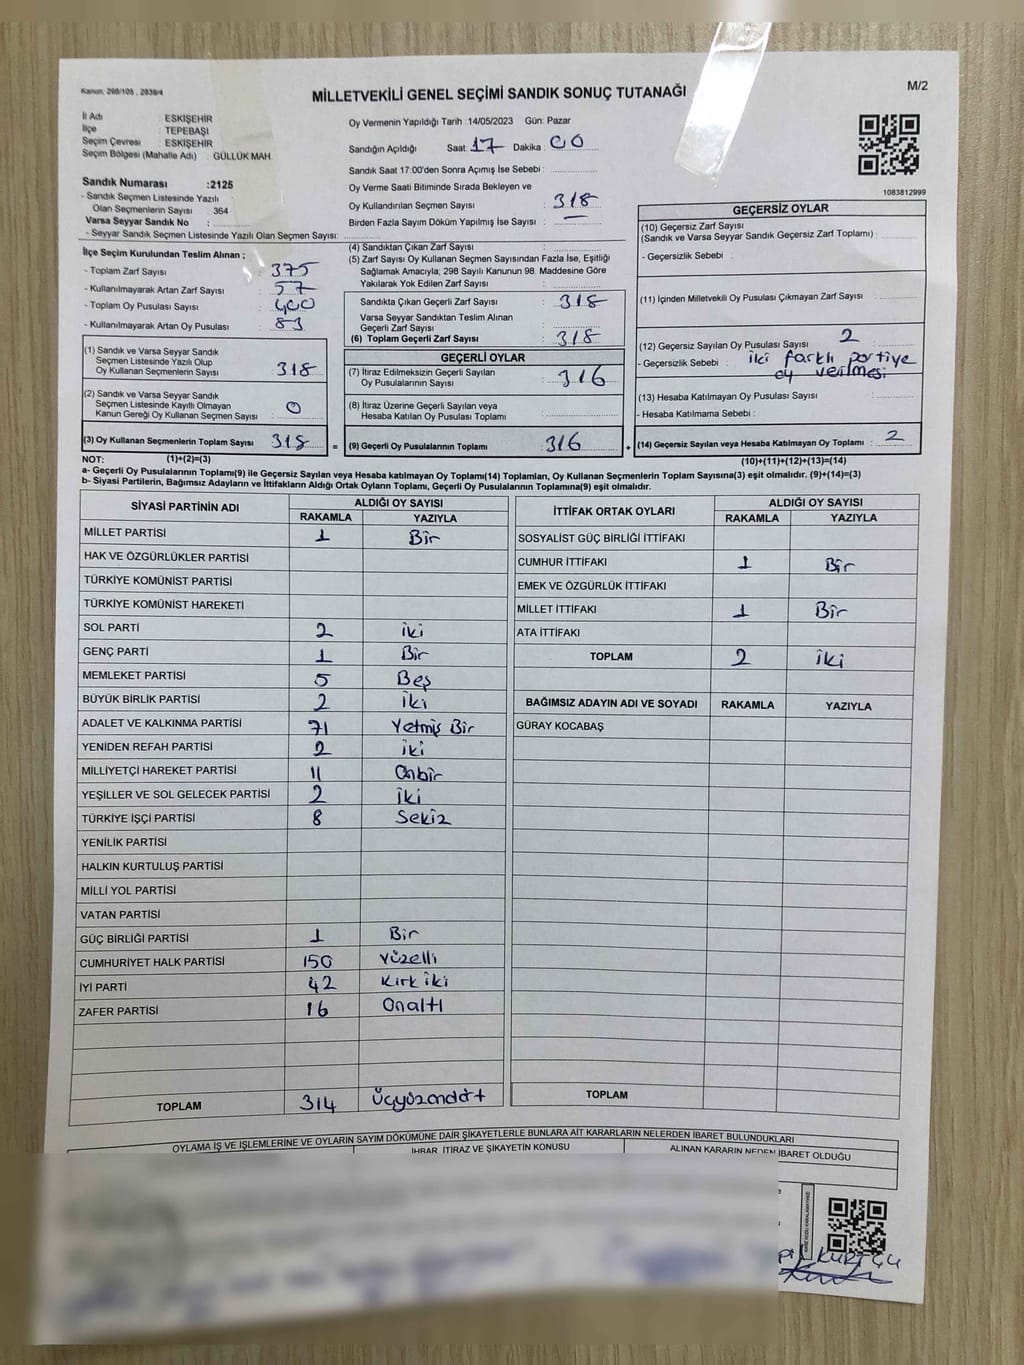 Kanun, 298/105 , 2839/4
MİLLETVEKİLİ GENEL SEÇİMİ SANDIK SONUÇ TUTANAĞI
M/2
İl Adı : ESKİŞEHİR
İlçe : TEPEBAŞI
Seçim Çevresi : ESKİŞEHİR
Seçim Bölgesi (Mahalle Adı) : GÜLLÜK MAH.
Sandık Numarası :2125
- Sandık Seçmen Listesinde Yazılı
Olan Seçmenlerin Sayısı : 364
Varsa Seyyar Sandık No :
- Seyyar Sandık Seçmen Listesinde Yazılı Olan Seçmen Sayısı:
Oy Vermenin Yapıldığı Tarih :14/05/2023 Gün: Pazar
Sandığın Açıldığı Saat: 17 Dakika : 00
Sandık Saat 17:00'den Sonra Açımış İse Sebebi :
Oy Verme Saati Bitiminde Sırada Bekleyen ve
Oy Kullandırılan Seçmen Sayısı : 318
Birden Fazla Sayım Döküm Yapılmış İse Sayısı : —
1083812999
İlçe Seçim Kurulundan Teslim Alınan ;
- Toplam Zarf Sayısı : 375
- Kullanılmayarak Artan Zarf Sayısı : 57
- Toplam Oy Pusulası Sayısı : 400
- Kullanılmayarak Artan Oy Pusulası : 83
(1) Sandık ve Varsa Seyyar Sandık
Seçmen Listesinde Yazılı Olup
Oy Kullanan Seçmenlerin Sayısı : 318
(2) Sandık ve Varsa Seyyar Sandık
Seçmen Listesinde Kayıtlı Olmayan
Kanun Gereği Oy Kullanan Seçmen Sayısı : 0
(3) Oy Kullanan Seçmenlerin Toplam Sayısı : 318 =
(4) Sandıktan Çıkan Zarf Sayısı :
(5) Zarf Sayısı Oy Kullanan Seçmen Sayısından Fazla İse, Eşitliği
Sağlamak Amacıyla; 298 Sayılı Kanunun 98. Maddesine Göre
Yakılarak Yok Edilen Zarf Sayısı :
Sandıkta Çıkan Geçerli Zarf Sayısı : 318
Varsa Seyyar Sandıktan Teslim Alınan
Geçerli Zarf Sayısı :
(6) Toplam Geçerli Zarf Sayısı : 318
GEÇERLİ OYLAR
(7) İtiraz Edilmeksizin Geçerli Sayılan
Oy Pusulalarının Sayısı : 316
(8) İtiraz Üzerine Geçerli Sayılan veya
Hesaba Katılan Oy Pusulası Toplamı :
(9) Geçerli Oy Pusulalarının Toplamı : 316 +
GEÇERSİZ OYLAR
(10) Geçersiz Zarf Sayısı
(Sandık ve Varsa Seyyar Sandık Geçersiz Zarf Toplamı) :
- Geçersizlik Sebebi :
(11) İçinden Milletvekili Oy Pusulası Çıkmayan Zarf Sayısı :
(12) Geçersiz Sayılan Oy Pusulası Sayısı : 2
- Geçersizlik Sebebi : iki farklı partiye
oy verilmesi
(13) Hesaba Katılmayan Oy Pusulası Sayısı :
- Hesaba Katılmama Sebebi :
(14) Geçersiz Sayılan veya Hesaba Katılmayan Oy Toplamı : 2
NOT: (1)+(2)=(3) (10)+(11)+(12)+(13)=(14)
a- Geçerli Oy Pusulalarının Toplamı(9) ile Geçersiz Sayılan veya Hesaba katılmayan Oy Toplamı(14) Toplamları, Oy Kullanan Seçmenlerin Toplam Sayısına(3) eşit olmalıdır. (9)+(14)=(3)
b- Siyasi Partilerin, Bağımsız Adayların ve İttifakların Aldığı Ortak Oyların Toplamı, Geçerli Oy Pusulalarının Toplamına(9) eşit olmalıdır.
SİYASİ PARTİNİN ADI ALDIĞI OY SAYISI
RAKAMLA YAZIYLA
MİLLET PARTİSİ 1 Bir
HAK VE ÖZGÜRLÜKLER PARTİSİ
TÜRKİYE KOMÜNİST PARTİSİ
TÜRKİYE KOMÜNİST HAREKETİ
SOL PARTİ 2 iki
GENÇ PARTİ 1 Bir
MEMLEKET PARTİSİ 5 Beş
BÜYÜK BİRLİK PARTİSİ 2 iki
ADALET VE KALKINMA PARTİSİ 71 Yetmiş Bir
YENİDEN REFAH PARTİSİ 2 iki
MİLLİYETÇİ HAREKET PARTİSİ 11 Onbir
YEŞİLLER VE SOL GELECEK PARTİSİ 2 iki
TÜRKİYE İŞÇİ PARTİSİ 8 Sekiz
YENİLİK PARTİSİ
HALKIN KURTULUŞ PARTİSİ
MİLLİ YOL PARTİSİ
VATAN PARTİSİ
GÜÇ BİRLİĞİ PARTİSİ 1 Bir
CUMHURİYET HALK PARTİSİ 150 Yüzelli
İYİ PARTİ 42 Kırk iki
ZAFER PARTİSİ 16 Onaltı
TOPLAM 314 Üçyüzondört
İTTİFAK ORTAK OYLARI ALDIĞI OY SAYISI
RAKAMLA YAZIYLA
SOSYALİST GÜÇ BİRLİĞİ İTTİFAKI
CUMHUR İTTİFAKI 1 Bir
EMEK VE ÖZGÜRLÜK İTTİFAKI
MİLLET İTTİFAKI 1 Bir
ATA İTTİFAKI
TOPLAM 2 iki
BAĞIMSIZ ADAYIN ADI VE SOYADI RAKAMLA YAZIYLA
GÜRAY KOCABAŞ
TOPLAM
OYLAMA İŞ VE İŞLEMLERİNE VE OYLARIN SAYIM DÖKÜMÜNE DAİR ŞİKAYETLERLE BUNLARA AİT KARARLARIN NELERDEN İBARET BULUNDUKLARI
İHBAR, İTİRAZ VE ŞİKAYETİN KONUSU
ALINAN KARARIN NEDEN İBARET OLDUĞU
KURTÇU